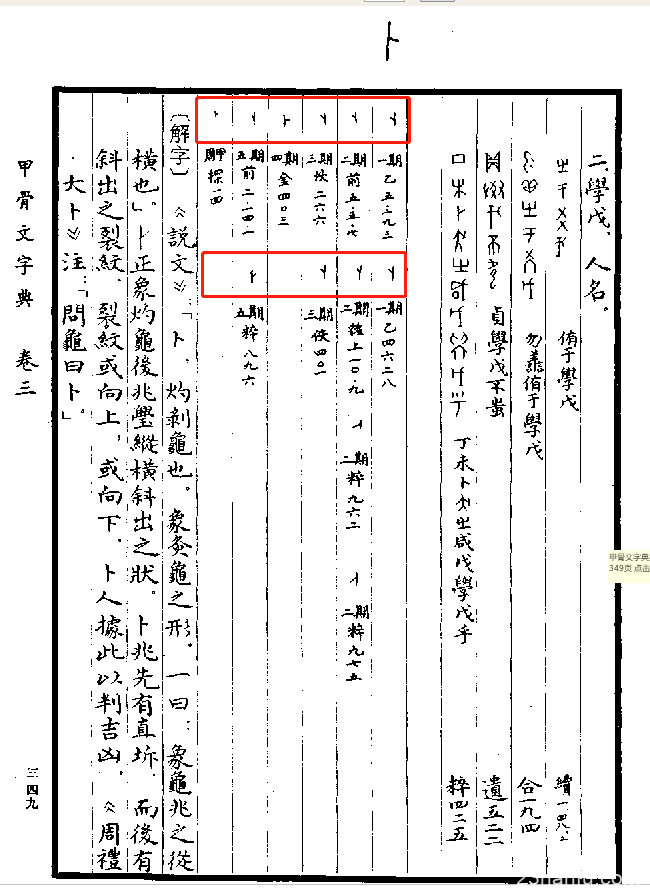 卜
二、學戊，人名。
侑于學戊 續一·四八·二
勿䔲侑于學戊 合一九四
貞學戊不蚩 遺五二二
丁未卜㞢咸戊學戊乎 粹四二五
一期 乙五二九三 一期 乙四六二八
二期 前五·五·七 二期 後上一〇·九 二期 粹九六二 二期 粹九七五
三期 佚二六六 三期 佚四〇二
四期 金四〇三
五期 前二·一四·一 五期 粹八九六
周甲 探一四
〔解字〕《說文》：「卜，灼剝龜也。象灸龜之形。一曰：象龜兆之從
橫也」。卜正象灼龜後兆璺縱橫斜出之狀。卜兆先有直坼，而後有
斜出之裂紋，裂紋或向上，或向下，卜人據此以判吉凶，《周禮
·大卜》注：「問龜曰卜」。
甲骨文字典 卷三
三四九
甲骨文字典
349页 点击